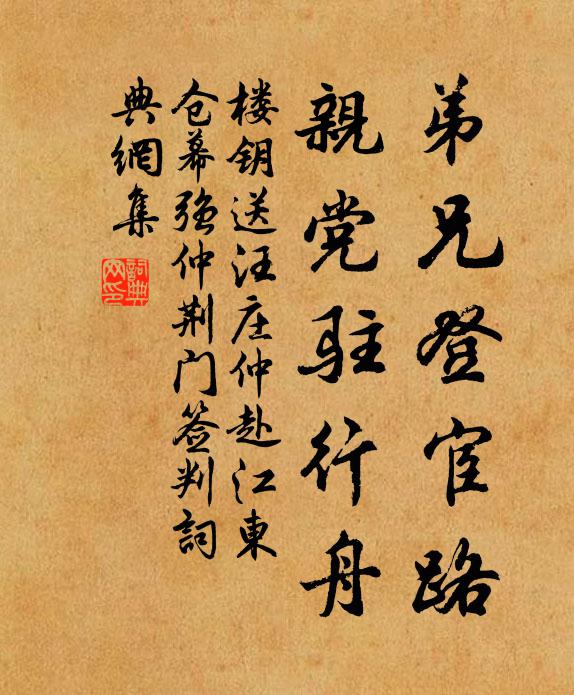 弟兄登宦路
親党駐行舟
楼钥送汪庄仲赴江東
仓幕强仲荆门签判詞
典網集
詞典網印